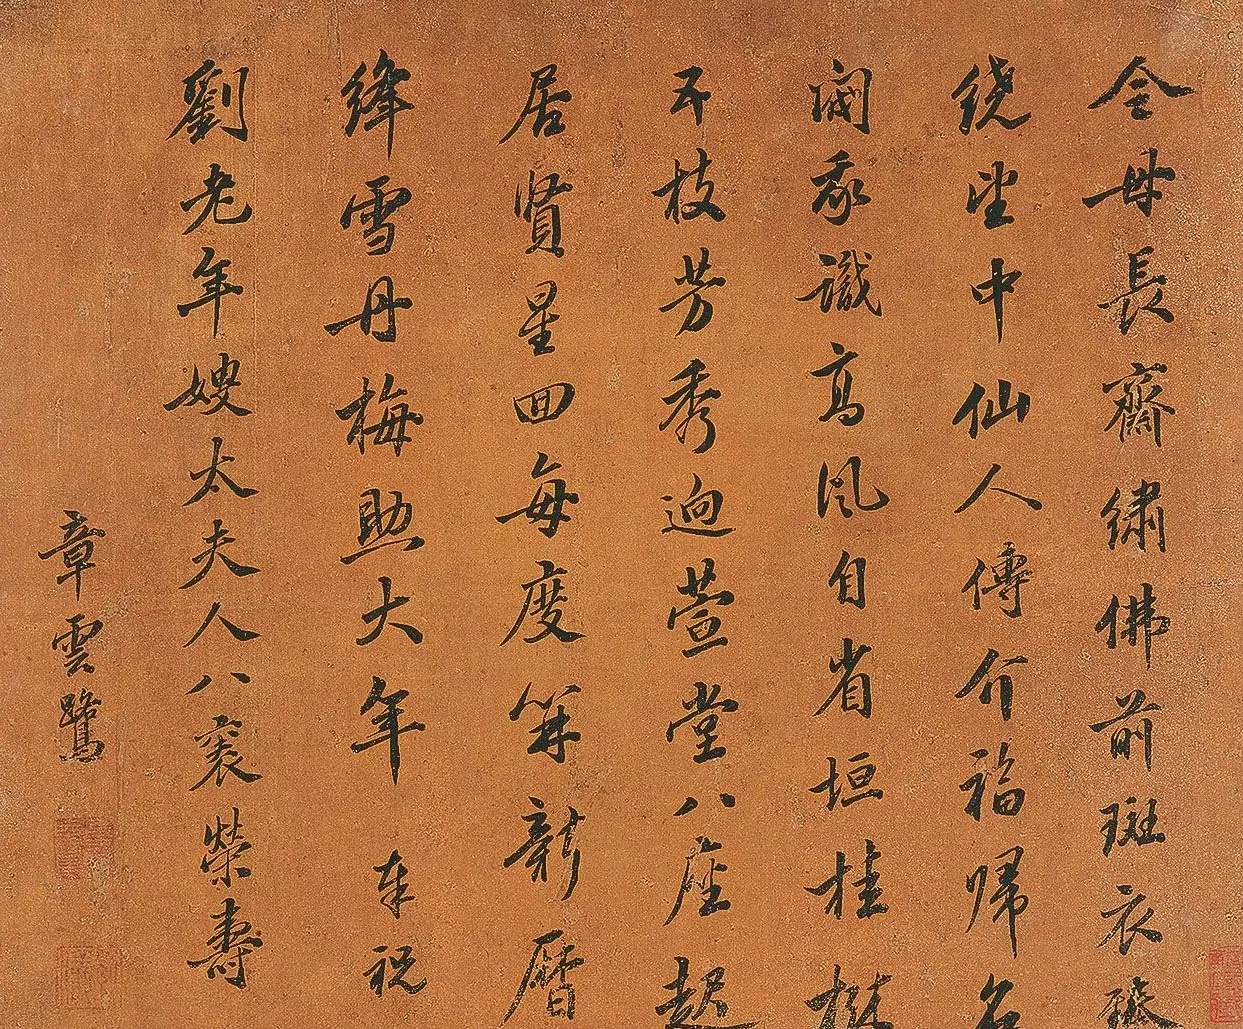 金母長齋繡佛前斑衣
繞望中仙人傳介福歸
閫承識高風自省垣桂
不枝芳秀迥萱堂八座起
居賢星回每度算新曆
絳雪丹梅照大年 奉祝
劉老年嫂太夫人八袠榮壽
章雲鷺